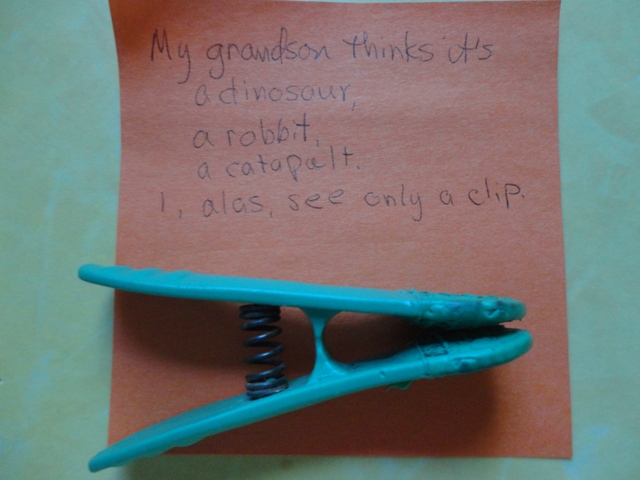 My grandson thinks it's
a dinosaur,
a rabbit,
a catapalt.
I, alas, see only a clip.